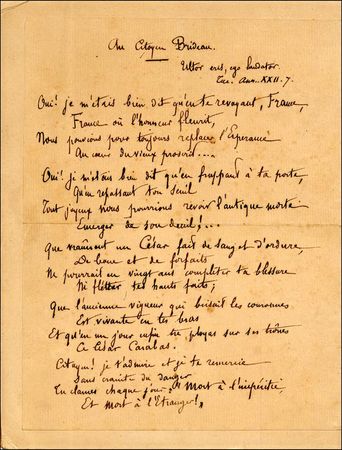 Au Citoyen Brideau.
Ultor eris, ego laudator.
Tac. Ann. XXII. 7.
Oui! je m'étais bien dit qu'en te revoyant, France,
France où l'honneur fleurit,
Nous pouvions pour toujours replacer l'Espérance
Au cœur du vieux proscrit....
Oui! je m'étais bien dit qu'en frappant à ta porte,
Qu'en repassant ton seuil
Tout joyeux nous pourrions revoir l'antique morte
Émerger de son deuil!...
Que vraiment un César fait de sang et d'ordure,
De boue et de forfaits
Ne pourrait en vingt ans compléter ta blessure
Ni flétrir tes hauts faits;
Que l'ancienne vigueur qui brisait les couronnes
Est vivante en tes bras
Et qu'en un jour enfin tu ployas sur ses trônes
Ce César Carabas.
Citoyen! je t'admire et je te remercie
Sans crainte du danger
Tu clames chaque jour: "Mort à l'impéritie,
Et Mort à l'Etranger!"